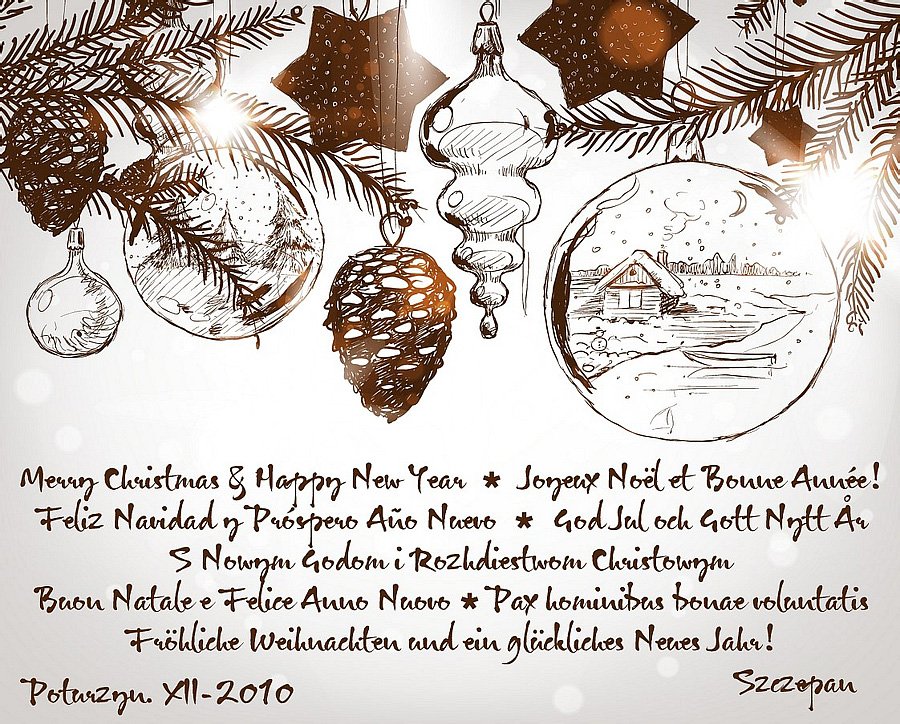 Merry Christmas & Happy New Year * Joyeux Noël et Bonne Année!
Feliz Navidad y Próspero Año Nuevo * God Jul och Gott Nytt År
S Nowym Godom i Rozhdiestwom Christowym
Buon Natale e Felice Anno Nuovo * Pax hominibus bonae voluntatis
Fröhliche Weihnachten und ein glückliches Neues Jahr!
Poturzyn. XII-2010
Szczepan